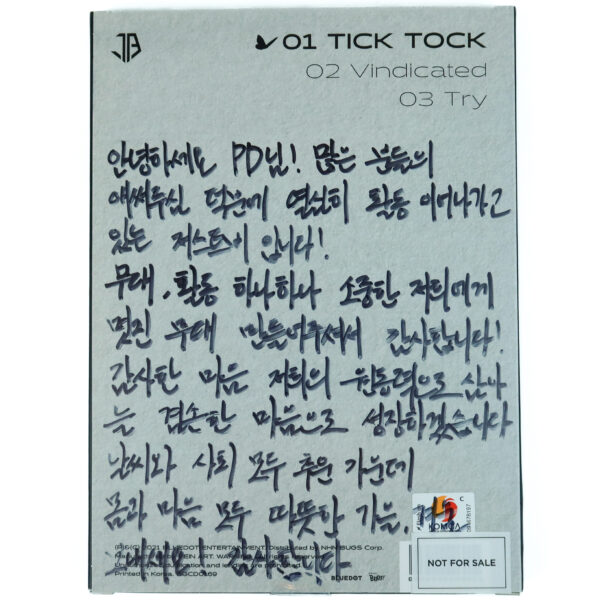 JB
01 TICK TOCK
02 Vindicated
03 Try
안녕하세요 PD님! 많은 분들의
애써주신 덕분에 열심히 활동 이어나가고
있는 저스트비 입니다!
무대, 활동 하나하나 소중한 저희에게
멋진 무대 만들어주셔서 감사합니다!
감사한 마음 저희의 원동력으로 삼아
늘 겸손한 마음으로 성장하겠습니다
날씨와 사회 모두 추운 가운데
몸과 마음 모두 따뜻한 가을, 겨울
감사합니다
2021 BLUEDOT ENTERTAINMENT. Distributed by NHN BUGS Corp.
Printed in Korea.
BLUEDOT
KOMCA
NOT FOR SALE